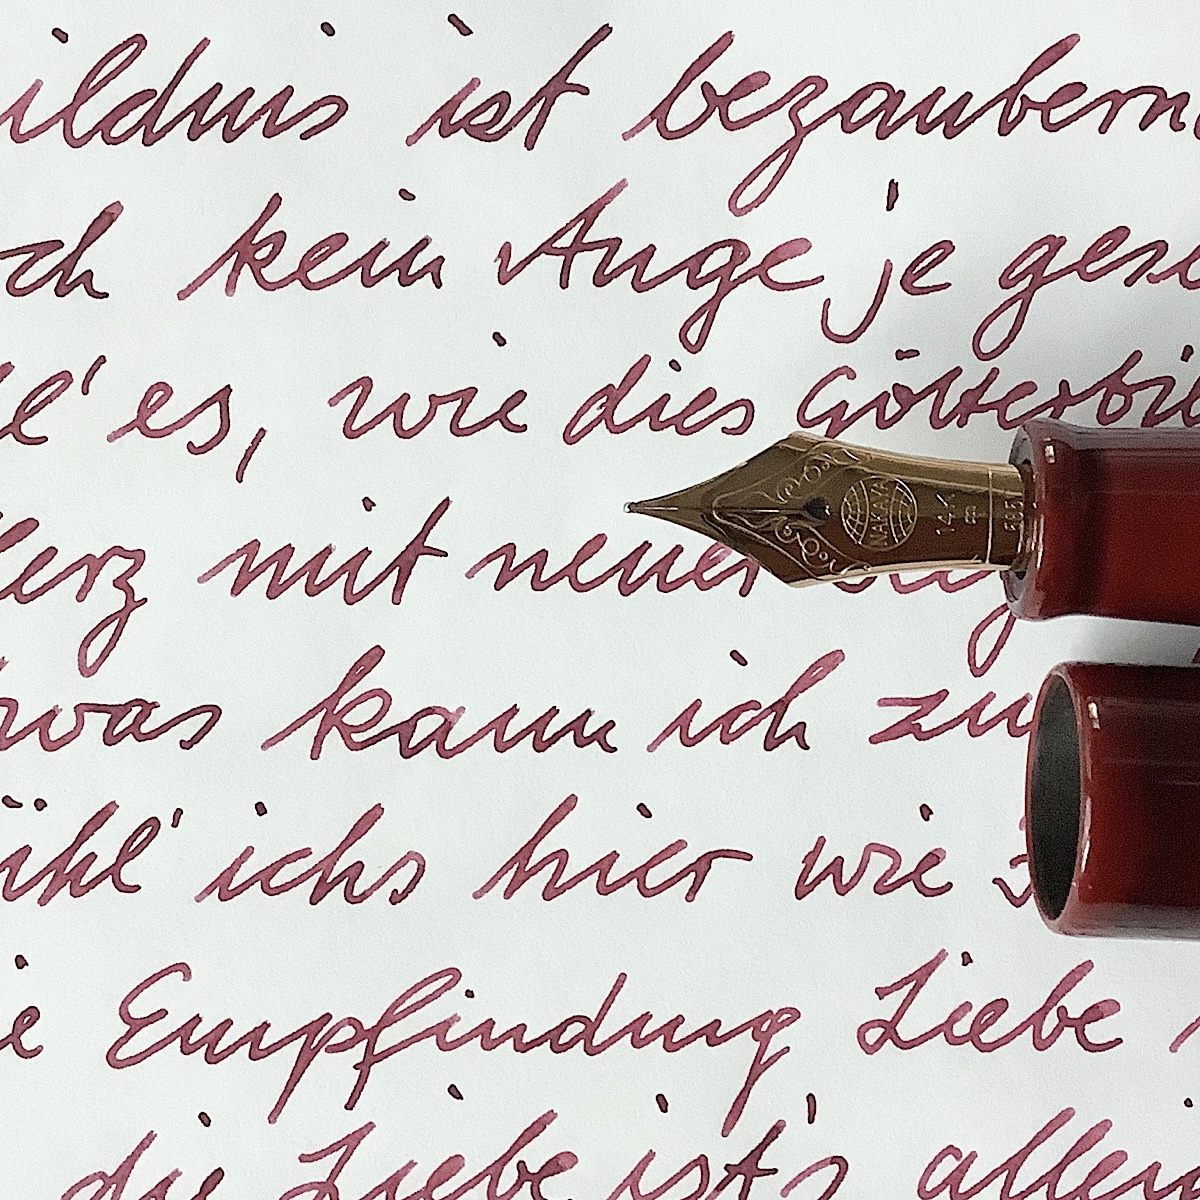 ildnis ist bezaubern
ch kein Auge je gese
le' es, wie dies Götterbil
Herz mit neuer Reg
NAKAYA
14K
585
twas kann ich zw
ühl' ichs hier wie
ie Empfindung Liebe
die Liebe ist's allein